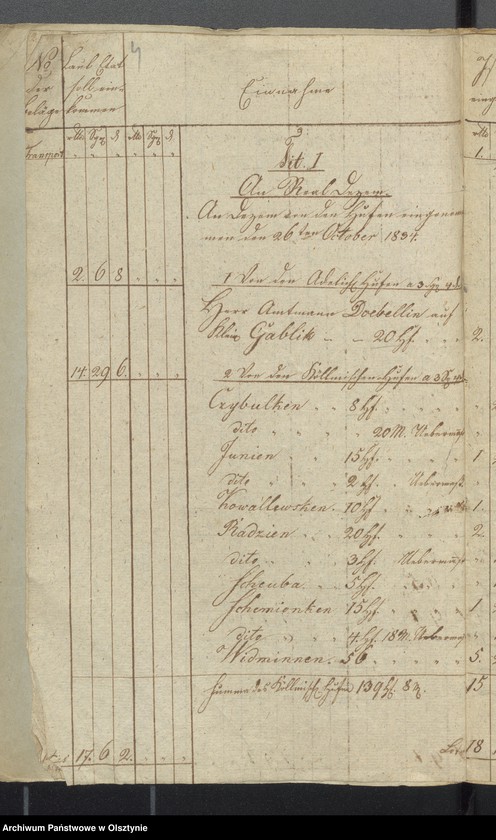 No der beläge
Laut Etat soll ein- kommen
Einnahme
Rtl. Sgr. d. Rtl. Sgr. d.
Transport
Tit. I
An Real Dezem.
An Dezem von den Hufen eingenom-
men den 26ten October 1834.
2. 6 8 1 Von den Adelich Hufen a 3 Sg 4 d
Herr Amtmann Doebellin auf
Klein Gablik - - 20 Hf. 2.
14. 29 6. 2 Von den Köllmischen Hufen a 3 Sg
Czybulken 8 Hf.
dito 20 M. Uebermaß
Junien 15 Hf. 1
dito 2 Hf. Uebermaß
Kowallewsken. 10 Hf 1.
Radzien 20 Hf. 2.
dito 3 Hf. Uebermaaß
Scheuba 5 Hf.
Schemionken 15 Hf. 1
dito 4 Hf. 18 M. Uebermaß
Widminnen. 56 5.
Summa des Köllmisch Hufen 139 Hf. 8 15
17. 6 2. 18
Archiwum Państwowe w Olsztynie